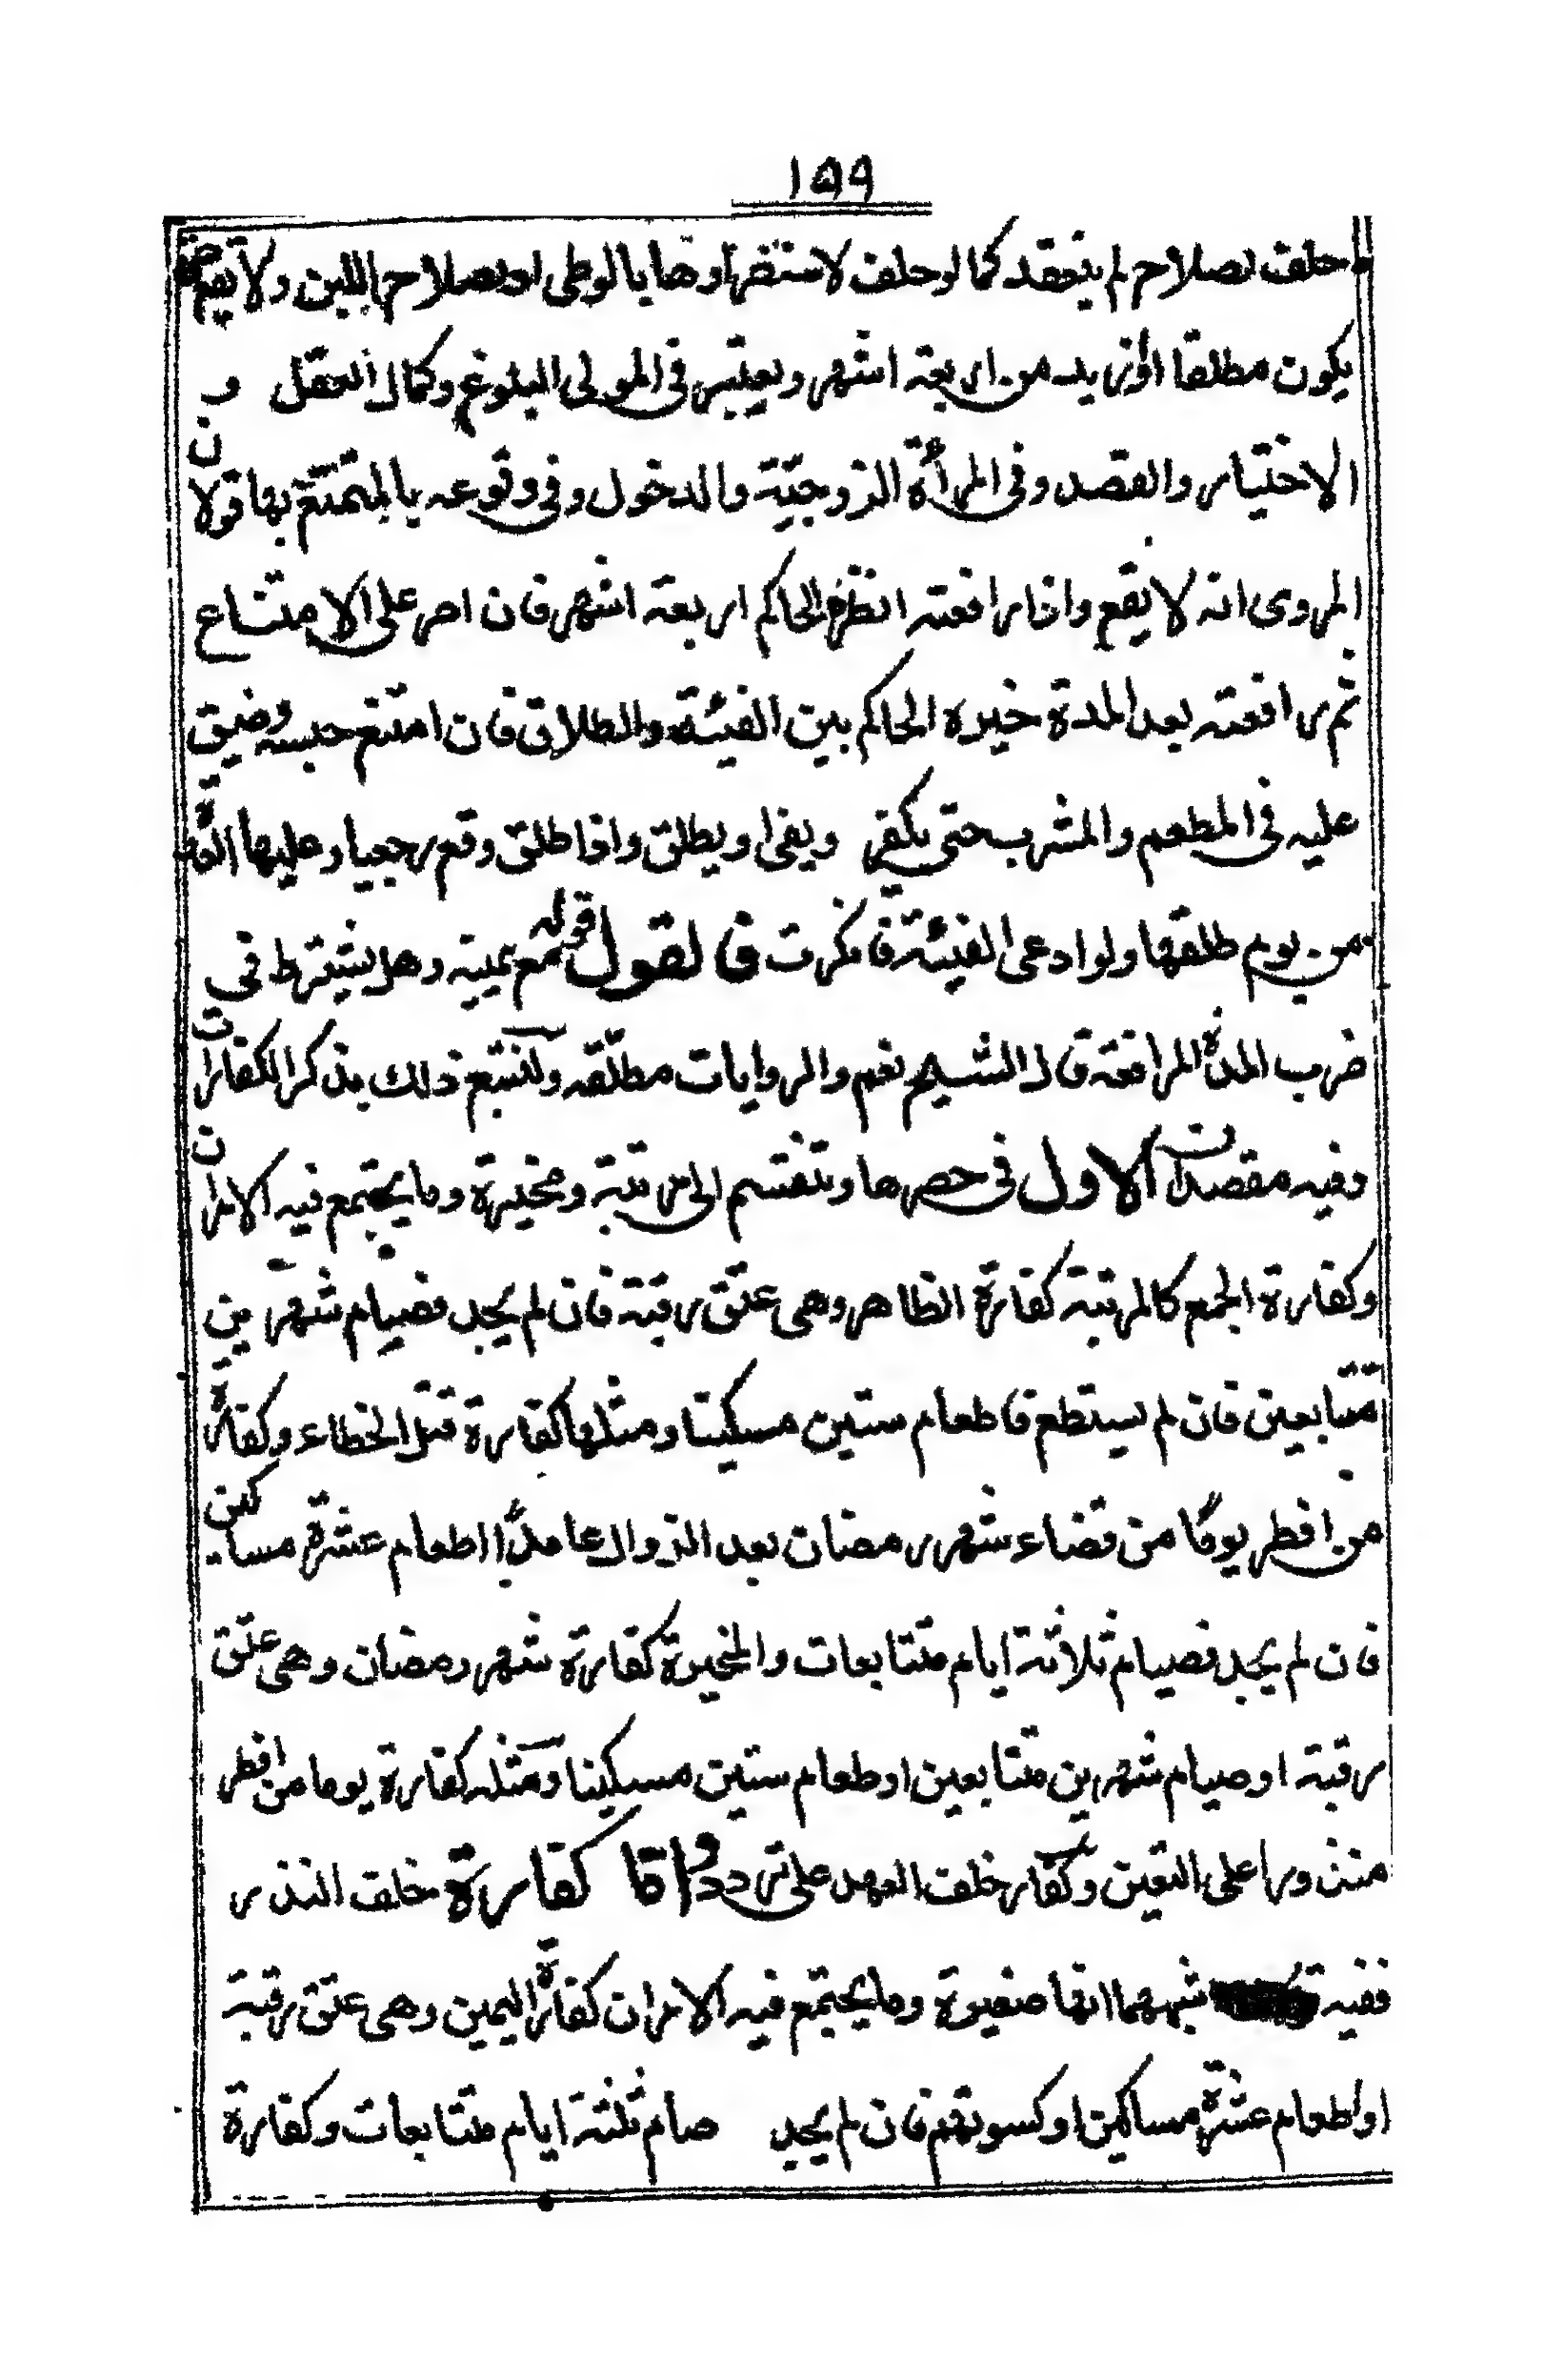 ١٥٩
حلف لصلاح لم ينعقد كما لو حلف لاستضرارها بالوطى او لصلاح اللبن ولا يقع حتى
يكون مطلقا او ازيد من اربعة اشهر ويعتبر فى المولى البلوغ وكمال العقل و
الاختيار والقصد وفى المرأة الزوجية والدخول وفى وقوعه بالمتمتع بها قولان
المروى انه لا يقع واذا رافعته انظره الحاكم اربعة اشهر فان اصر على الامتناع
ثم رافعته بعد المدة خيره الحاكم بين الفيئة والطلاق فان امتنع حبسه وضيق
عليه فى المطعم والمشرب حتى يكفر ويفئ او يطلق واذا طلق وقع رجعيا وعليها العدة
من يوم طلقها ولو ادعى الفيئة فانكرت فالقول قوله مع يمينه وهل يشترط فى
ضرب المدة المرافعة قال الشيخ نعم والروايات مطلقه ولنتبع ذلك بذكر الكفارات
وفيه مقصدان الاول فى حصرها وتنقسم الى مرتبة ومخيرة وما يجتمع فيه الامران
وكفارة الجمع كالمرتبة كفارة الظاهر وهى عتق رقبة فان لم يجد فصيام شهرين
متتابعين فان لم يستطع فاطعام ستين مسكينا ومثلها كفارة قتل الخطاء وكفارة
من افطر يوما من قضاء شهر رمضان بعد الزوال عامدا اطعام عشرة مساكين
فان لم يجد فصيام ثلاثة ايام متتابعات والمخيرة كفارة شهر رمضان وهى عتق
رقبة او صيام شهرين متتابعين او طعام ستين مسكينا ومثله كفارة يوما من افطر
منذورا على التعين وكفارة خلف العهد على تردد واما كفارة خلف النذر
ففيه شبههما انها صغيرة وما يجتمع فيه الامران كفارة اليمين وهى عتق رقبة
او اطعام عشرة مساكين او كسوتهم فان لم يجد صام ثلثة ايام متتابعات وكفارة